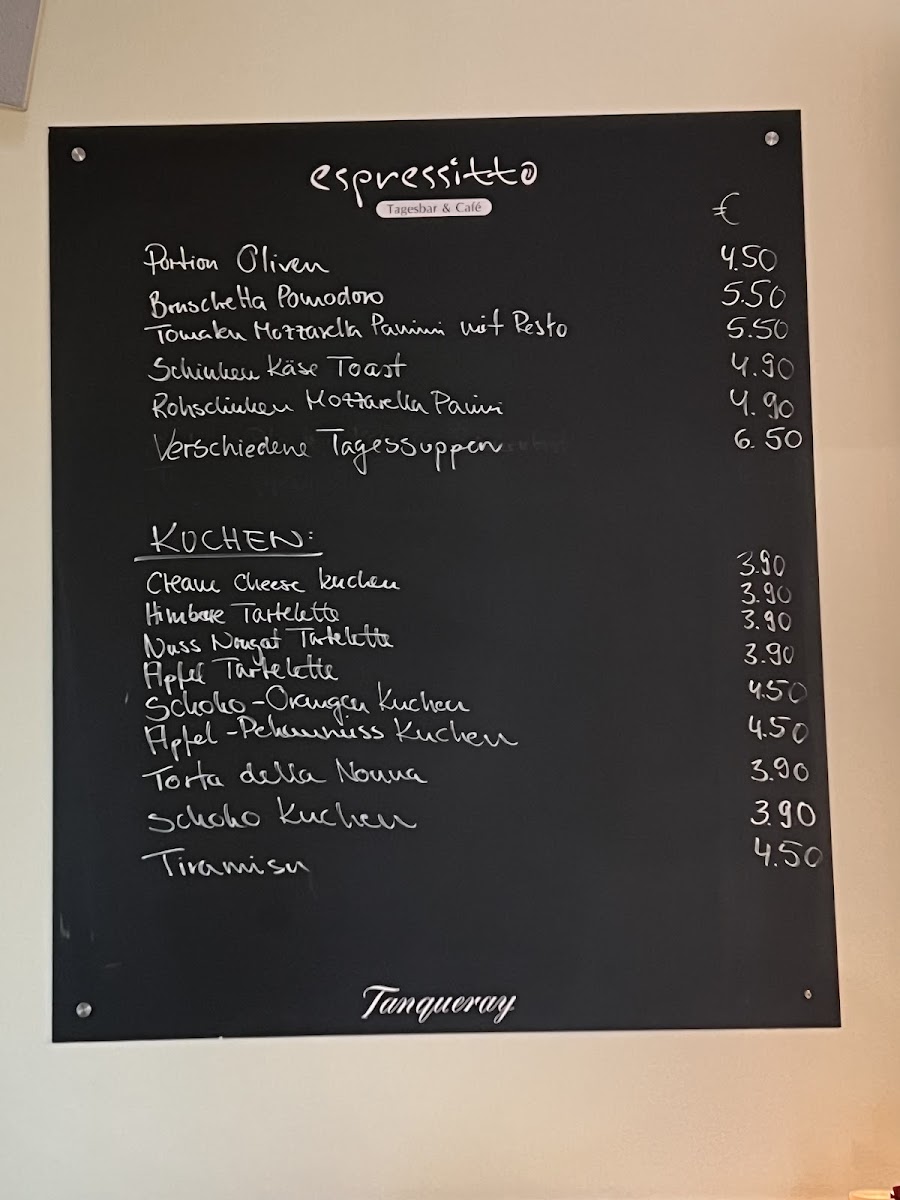 espressitto
Tagesbar & Café
€
Portion Oliven 4.50
Bruschetta Pomodoro 5.50
Tomaten Mozzarella Panini mit Pesto 5.50
Schinken Käse Toast 4.90
Rohschinken Mozzarella Panini 4.90
Verschiedene Tagessuppen 6.50
KUCHEN:
Cream cheese kuchen 3.90
Himbere Tartelette 3.90
Nuss Nougat Tartelette 3.90
Apfel Tartelette 3.90
Schoko-Orangen Kuchen 4.50
Apfel-Pekannuss Kuchen 4.50
Torta della Nonna 3.90
Schoko Kuchen 3.90
Tiramisu 4.50
Tanqueray